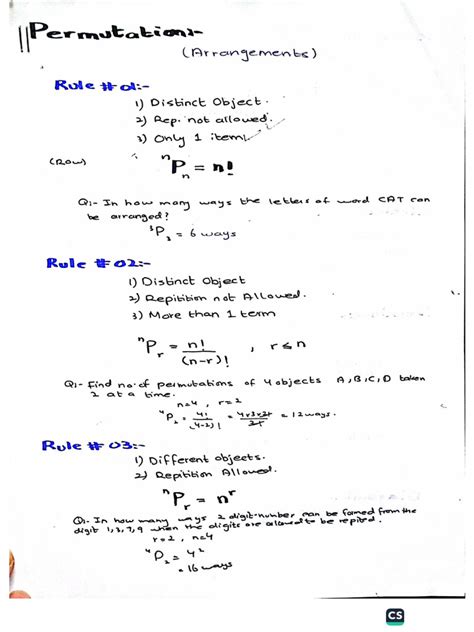 Permutation:-
(Arrangements)
Rule # 01:-
1) Distinct Object.
2) Rep. not allowed.
3) Only 1 item.
(Row)
ⁿPₙ = n!
Q:- In how many ways the letters of word CAT can
be arranged?
³P₃ = 6 ways
Rule # 02:-
1) Distinct Object
2) Repitition not Allowed.
3) More than 1 term
ⁿPᵣ = n!/(n-r)! , r≤n
Q:- Find no. of permutations of 4 objects A,B,C,D taken
2 at a time.
n=4, r=2
⁴P₂ = 4!/(4-2)! = 4x3x2!/2! = 12 ways.
Rule # 03:-
1) Different objects.
2) Repitition Allowed.
ⁿPᵣ = nʳ
Q:- In how many ways 2 digit-number can be formed from the
digit 1,3,7,9 when the digits are allowed to be repited.
r=2, n=4
⁴P₂ = 4²
= 16 ways
CS